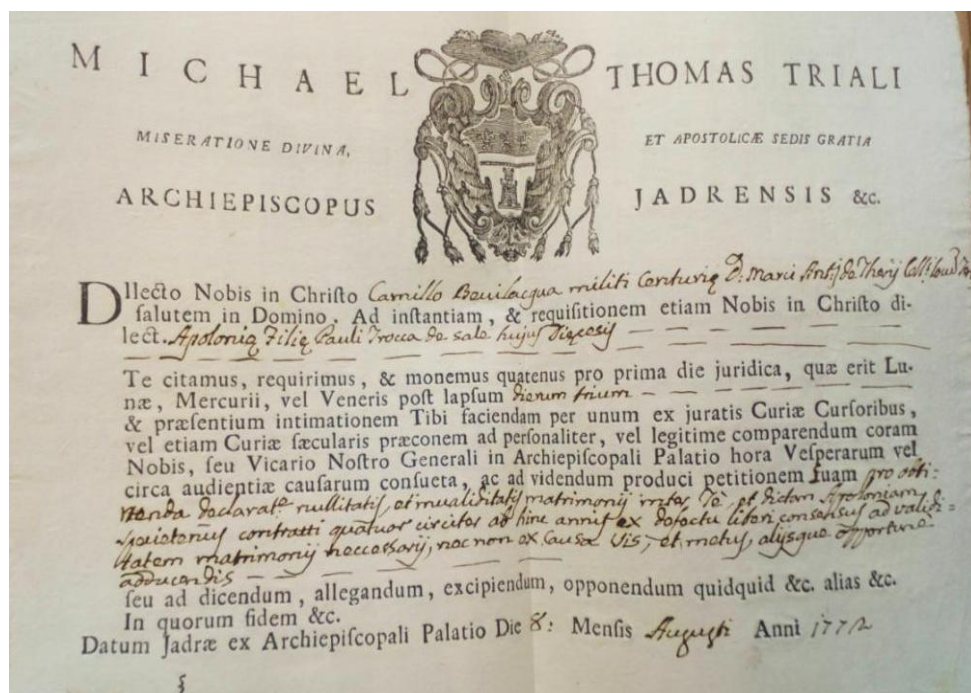 MICHAEL THOMAS TRIALI
MISERATIONE DIVINA, ET APOSTOLICÆ SEDIS GRATIA
ARCHIEPISCOPUS JADRENSIS &c.
DIlecto Nobis in Christo Camillo Bevilacqua militi Centurię D: Marci Antij de Therij
salutem in Domino. Ad instantiam, & requisitionem etiam Nobis in Christo di-
lect. Apolonię Filię Pauli Trocca de sale hujus Dięcesis
Te citamus, requirimus, & monemus quatenus pro prima die juridica, quæ erit Lu-
næ, Mercurii, vel Veneris post lapsum dierum trium
& præsentium intimationem Tibi faciendam per unum ex juratis Curiæ Cursoribus,
vel etiam Curiæ sæcularis præconem ad personaliter, vel legitime comparendum coram
Nobis, seu Vicario Nostro Generali in Archiepiscopali Palatio hora Vesperarum vel
circa audientiæ causarum consueta, ac ad videndum produci petitionem suam pro obti:
nenda declarat.e nullitatis, et invaliditatis matrimonij inter Te et dictam Apoloniam
contracti quatuor circiter ad hinc annis ex defectu liberi consensus ad validi=
tatem matrimonij neccessarij, nec non ex causa Vis, et metus, alijsque opportune
adducendis
seu ad dicendum, allegandum, excipiendum, opponendum quidquid &c. alias &c.
In quorum fidem &c.
Datum Jadræ ex Archiepiscopali Palatio Die 8: Mensis Augusti Anni 1772